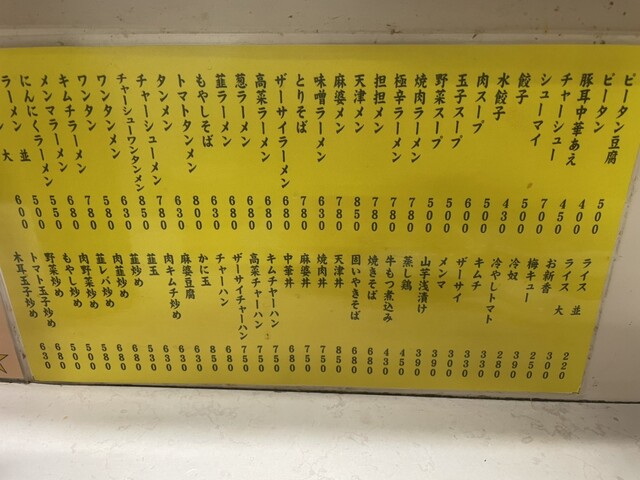 ピータン豆腐
ピータン
豚耳中華あえ
チャーシュー
シューマイ
餃子
水餃子
肉スープ
玉子スープ
野菜スープ
焼肉ラーメン
極辛ラーメン
担担メン
天津メン
麻婆メン
味噌ラーメン
とりそば
ザーサイラーメン
高菜ラーメン
葱ラーメン
韮ラーメン
もやしそば
トマトタンメン
タンメン
チャーシューメン
チャーシューワンタンメン
ワンタンメン
ワンタン
キムチラーメン
メンマラーメン
にんにくラーメン
ラーメン 並
大
500
400
450
700
500
430
500
500
500
780
780
850
780
630
780
680
680
680
630
800
630
780
850
630
580
780
680
550
500
600
ライス 並
ライス 大
お新香
梅キュー
冷奴
冷やしトマト
キムチ
ザーサイ
メンマ
山芋浅漬け
蒸し鶏
牛もつ煮込み
焼きそば
固いやきそば
天津丼
焼肉丼
麻婆丼
中華丼
キムチャーハン
高菜チャーハン
ザーサイチャーハン
チャーハン
かに玉
麻婆豆腐
肉キムチ炒め
韮玉
韮炒め
肉韮炒め
韮レバ炒め
肉野菜炒め
もやし炒め
野菜炒め
トマト玉子炒め
木耳玉子炒め
220
300
250
390
280
330
330
300
390
390
450
430
680
680
850
750
750
680
750
750
750
680
850
630
630
530
630
680
680
580
500
500
680
630